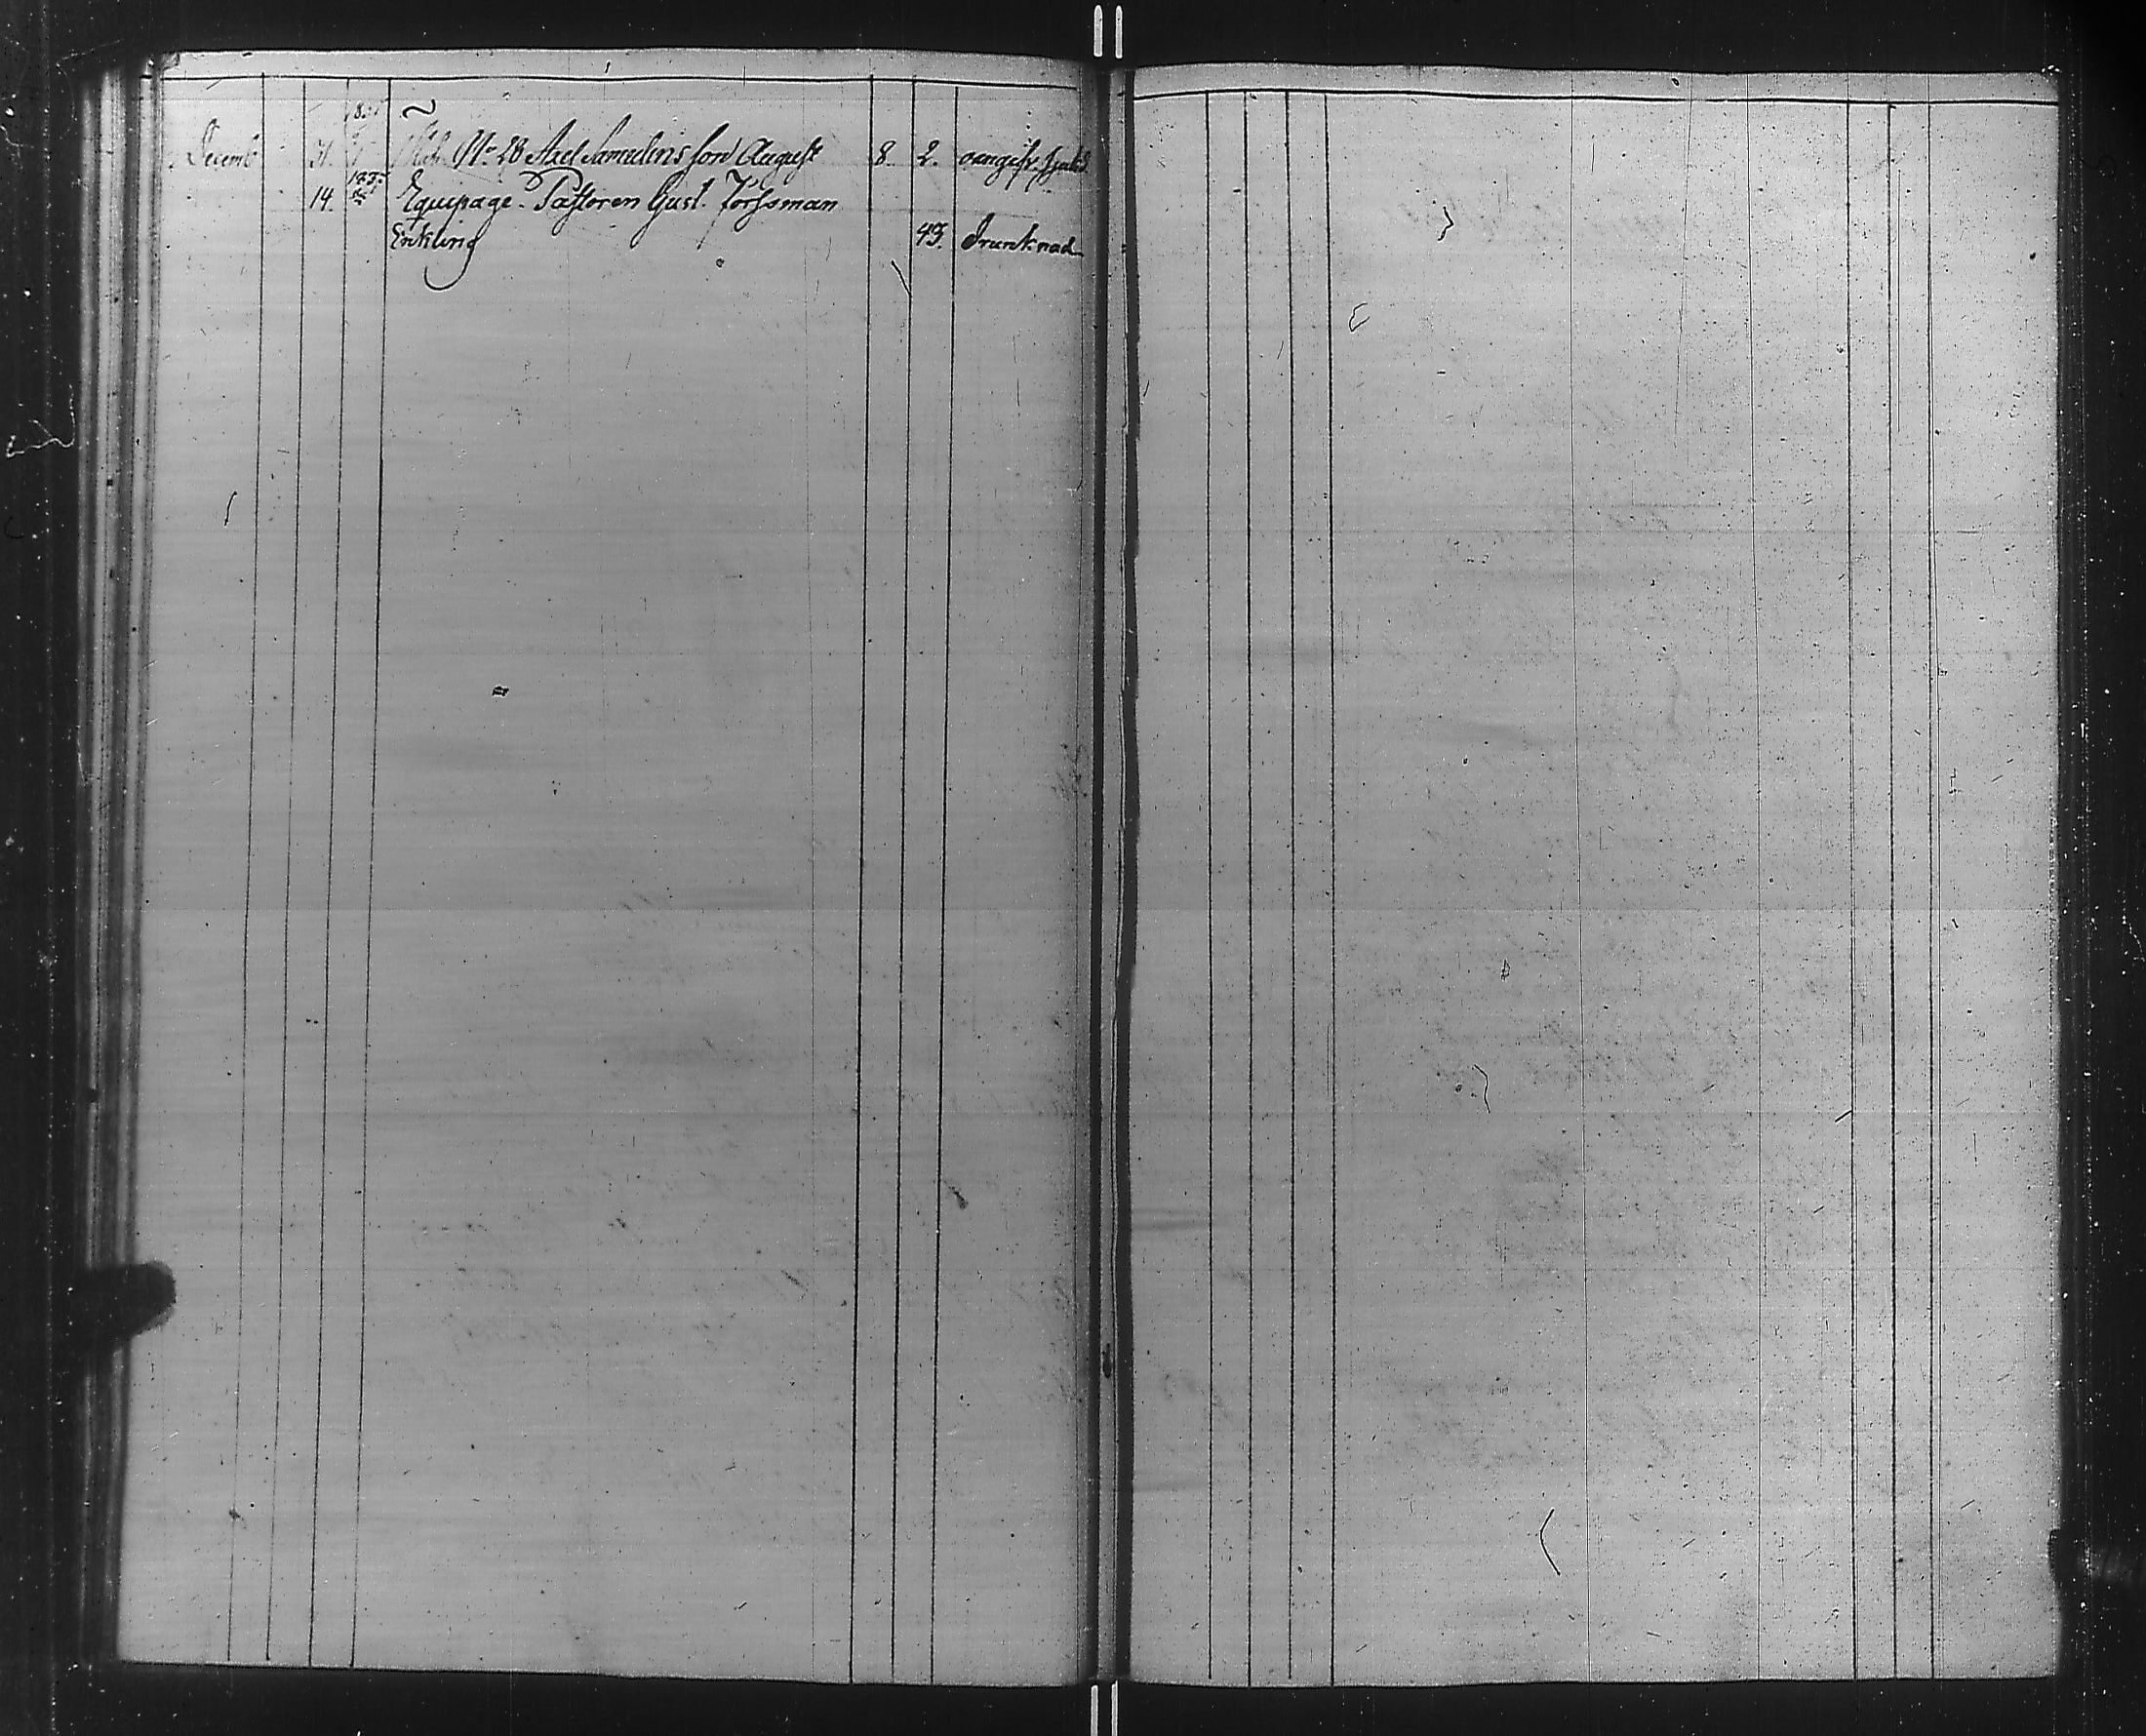 Decemb 31. No 28 Axel Samuelins son August 8. 2. oangifv. sjukd.
14. Equipage. Pastoren Gust. Forssman
Enkling 43. Drunknad